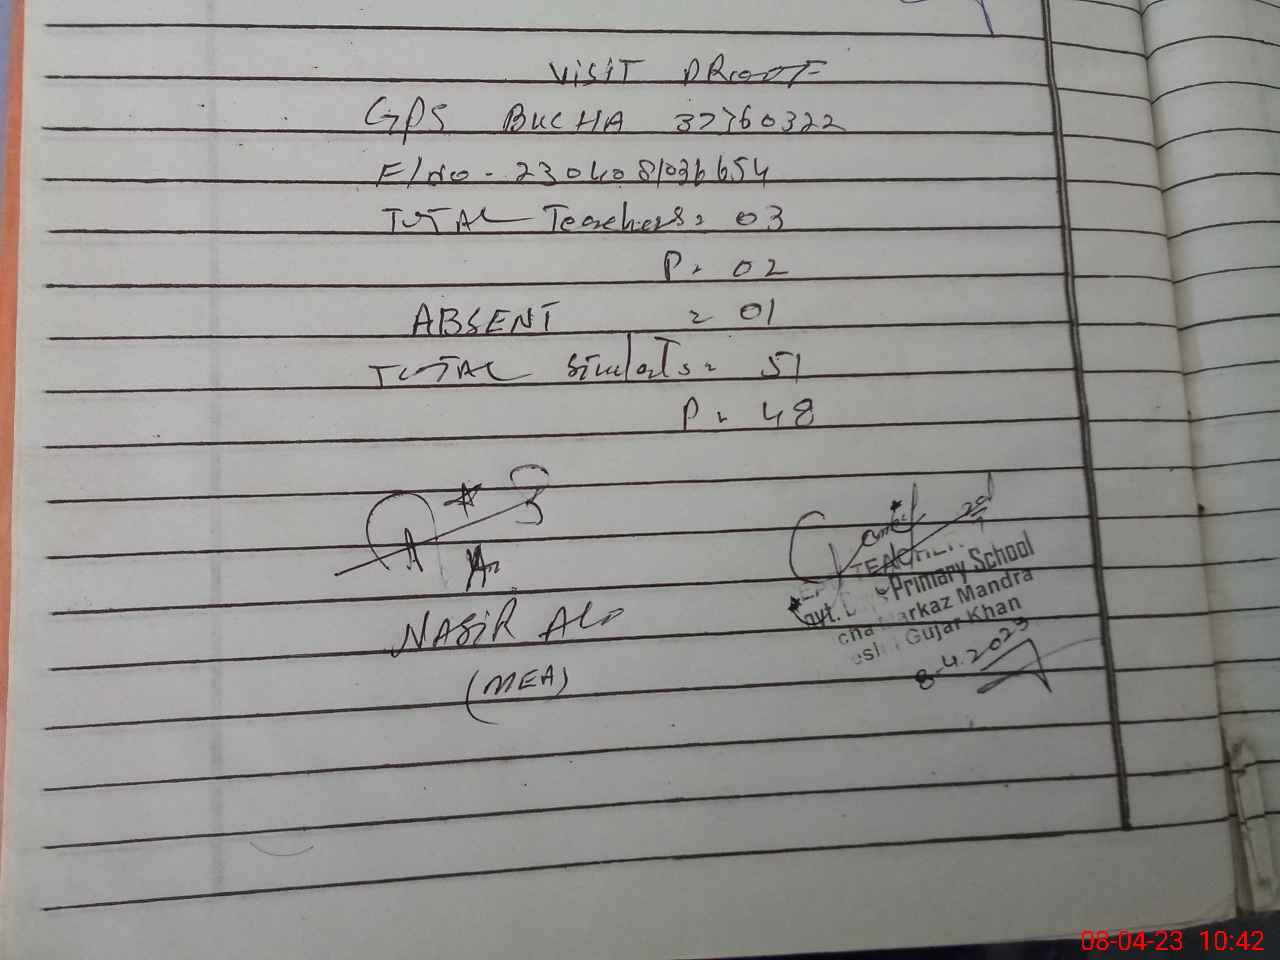 VISIT PROOF
GPS BUCHA 37360322
F/No - 2304081036654
TOTAL Teachers = 03
P = 02
ABSENT = 01
TOTAL Students = 51
P = 48
NASIR ALi
(MEA)
TEACHER
Govt. Primary School
Markaz Mandra
Gujar Khan
8-4.2023
08-04-23 10:42